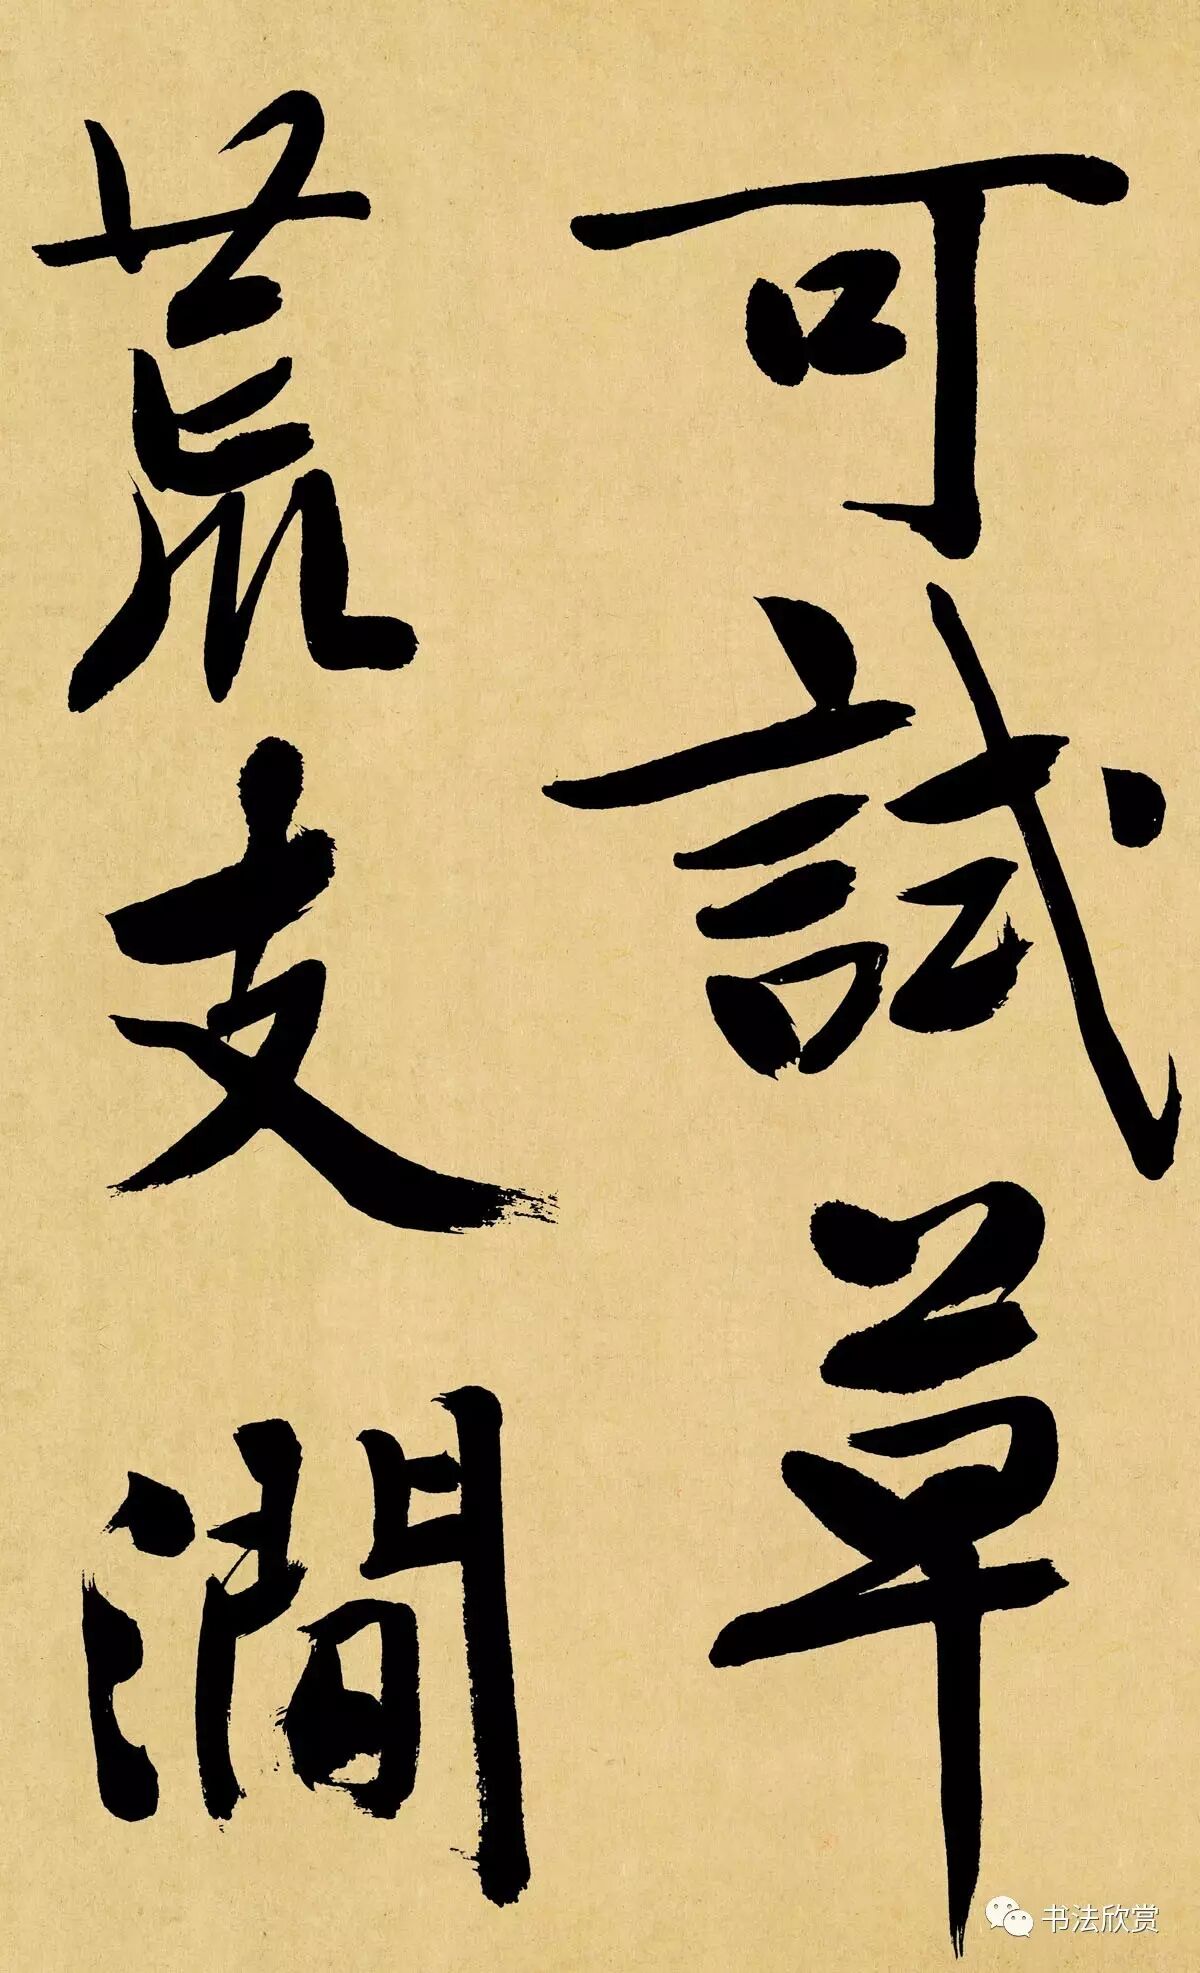 可試草
荒支澗
书法欣赏